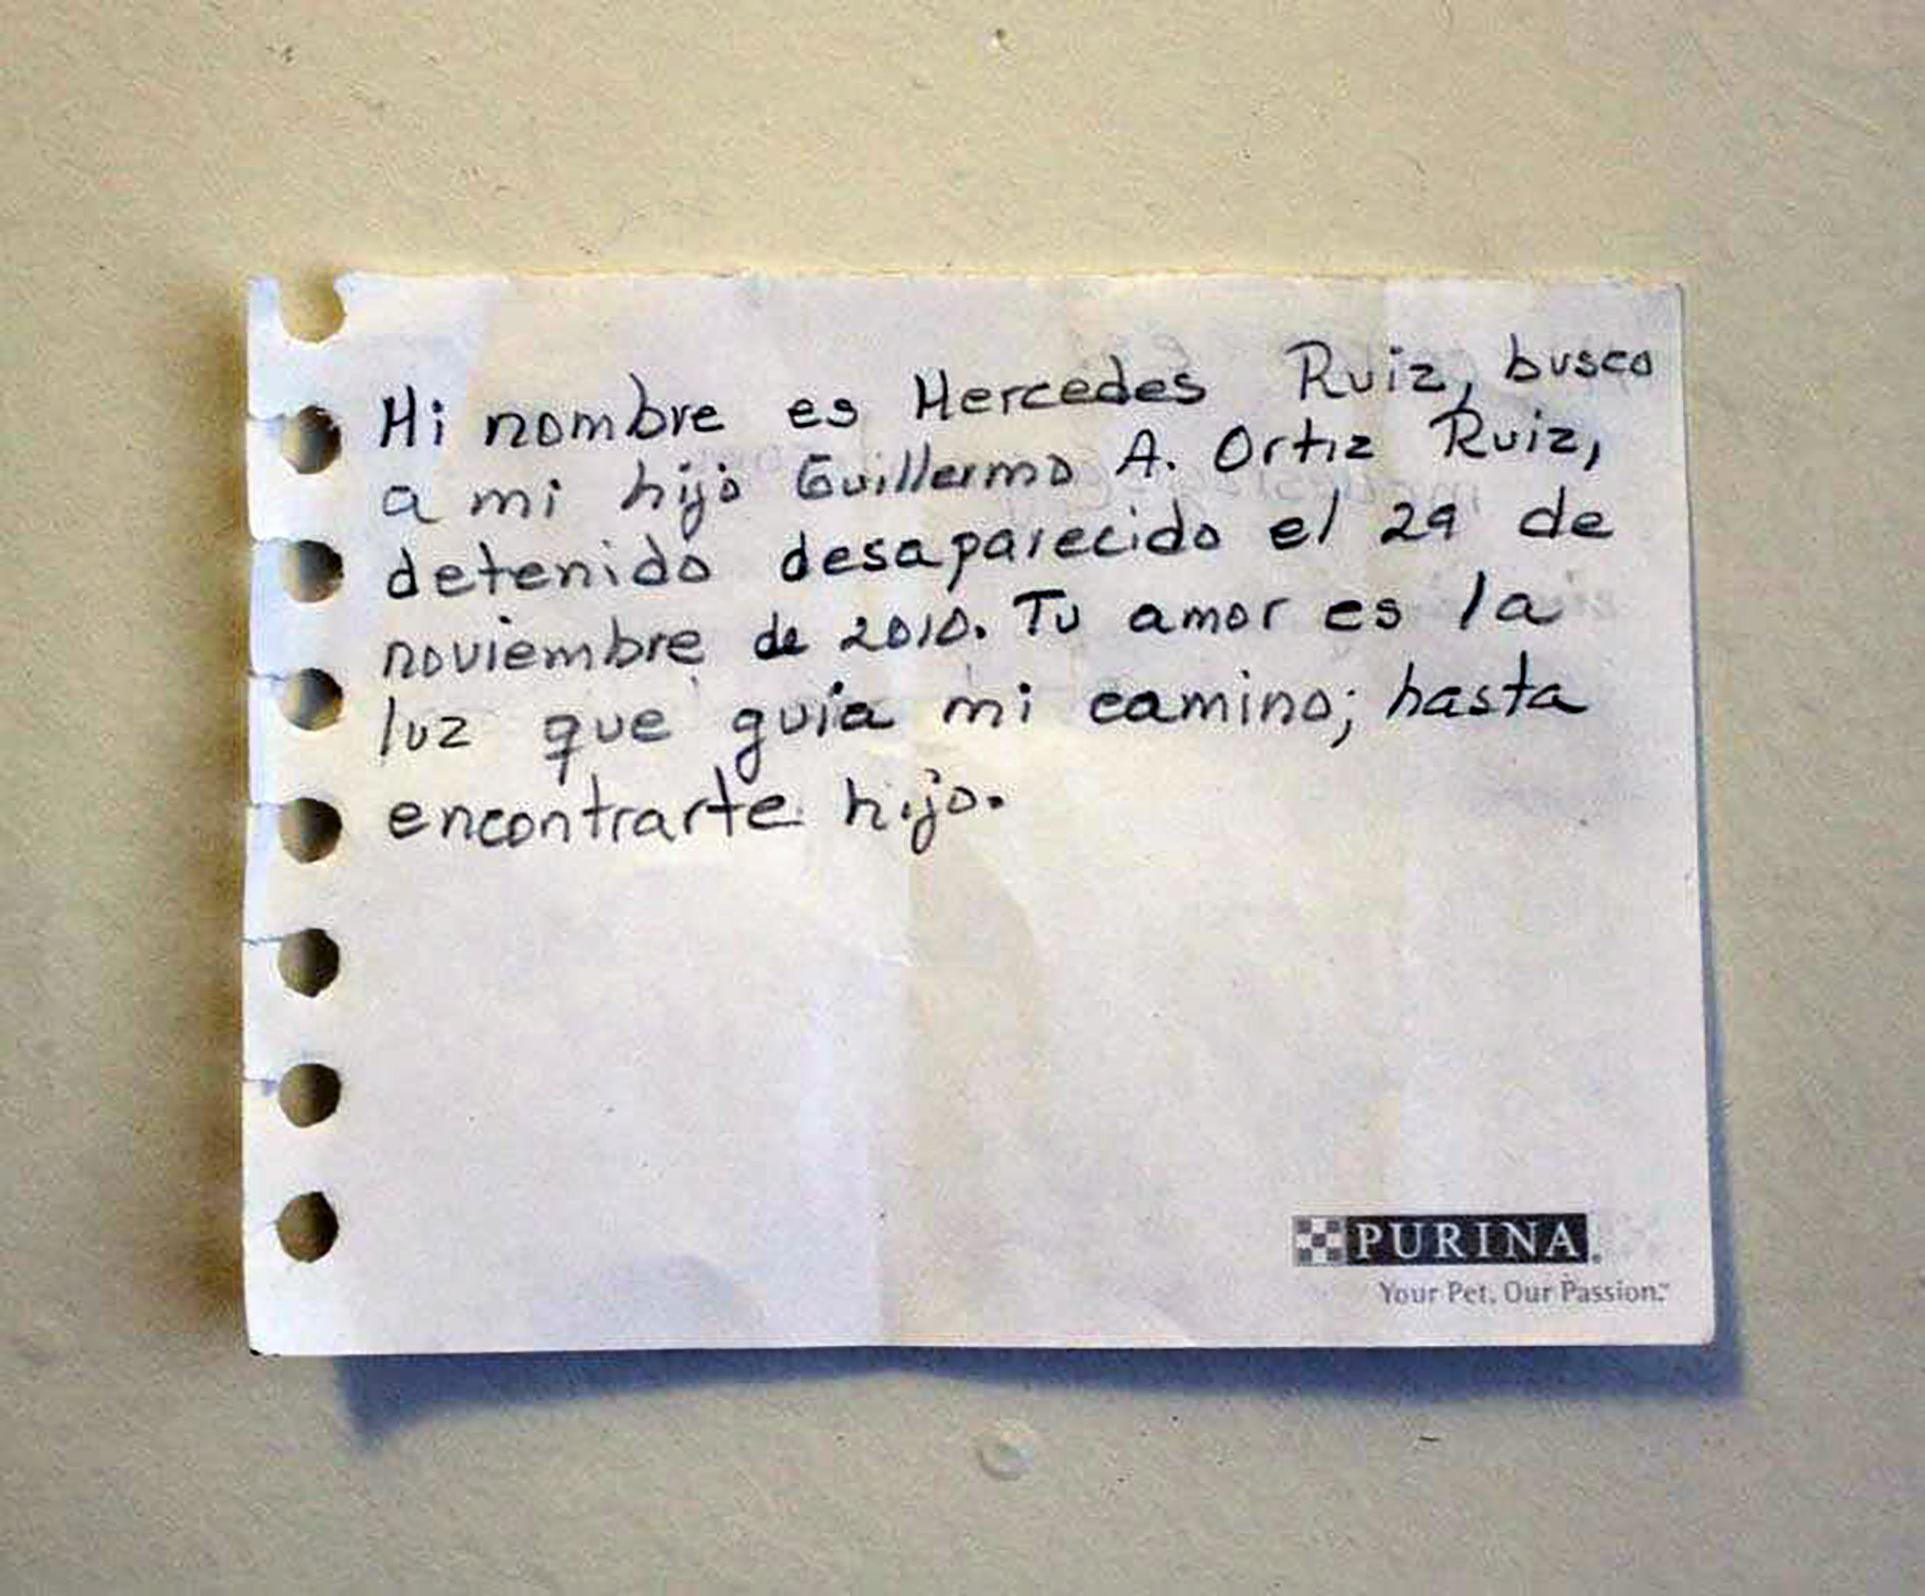 Mi nombre es Mercedes Ruiz, busco
a mi hijo Guillermo A. Ortiz Ruiz,
detenido desaparecido el 29 de
noviembre de 2010. Tu amor es la
luz que guía mi camino; hasta
encontrarte hijo.
PURINA®
Your Pet, Our Passion.™